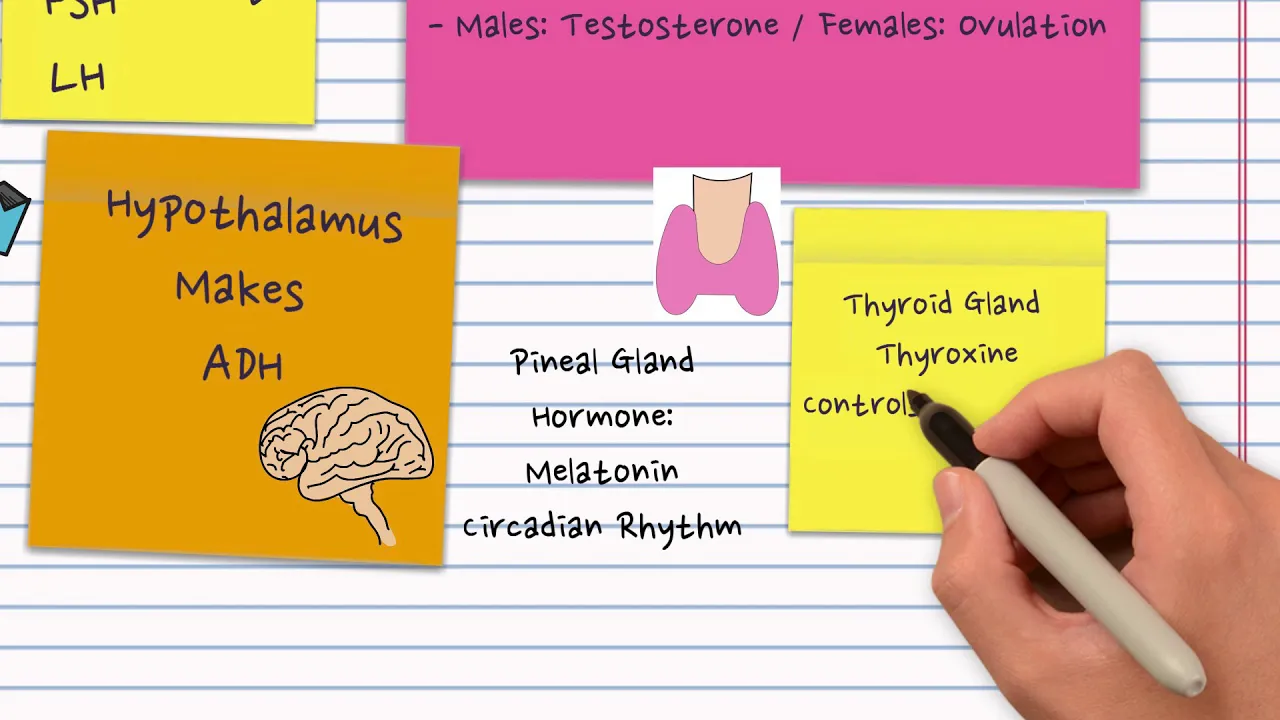 FSH
LH
- Males: Testosterone / Females: Ovulation
Hypothalamus
Makes
ADH
Pineal Gland
Hormone:
Melatonin
Circadian Rhythm
Thyroid Gland
Thyroxine
controls